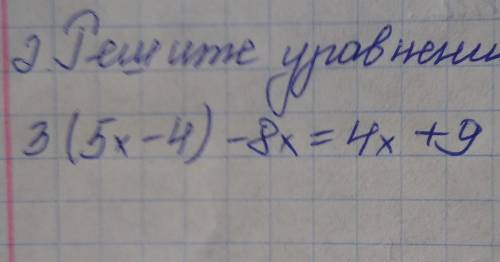 2. Решите уравнени
3(5x-4)-8x=4x+9